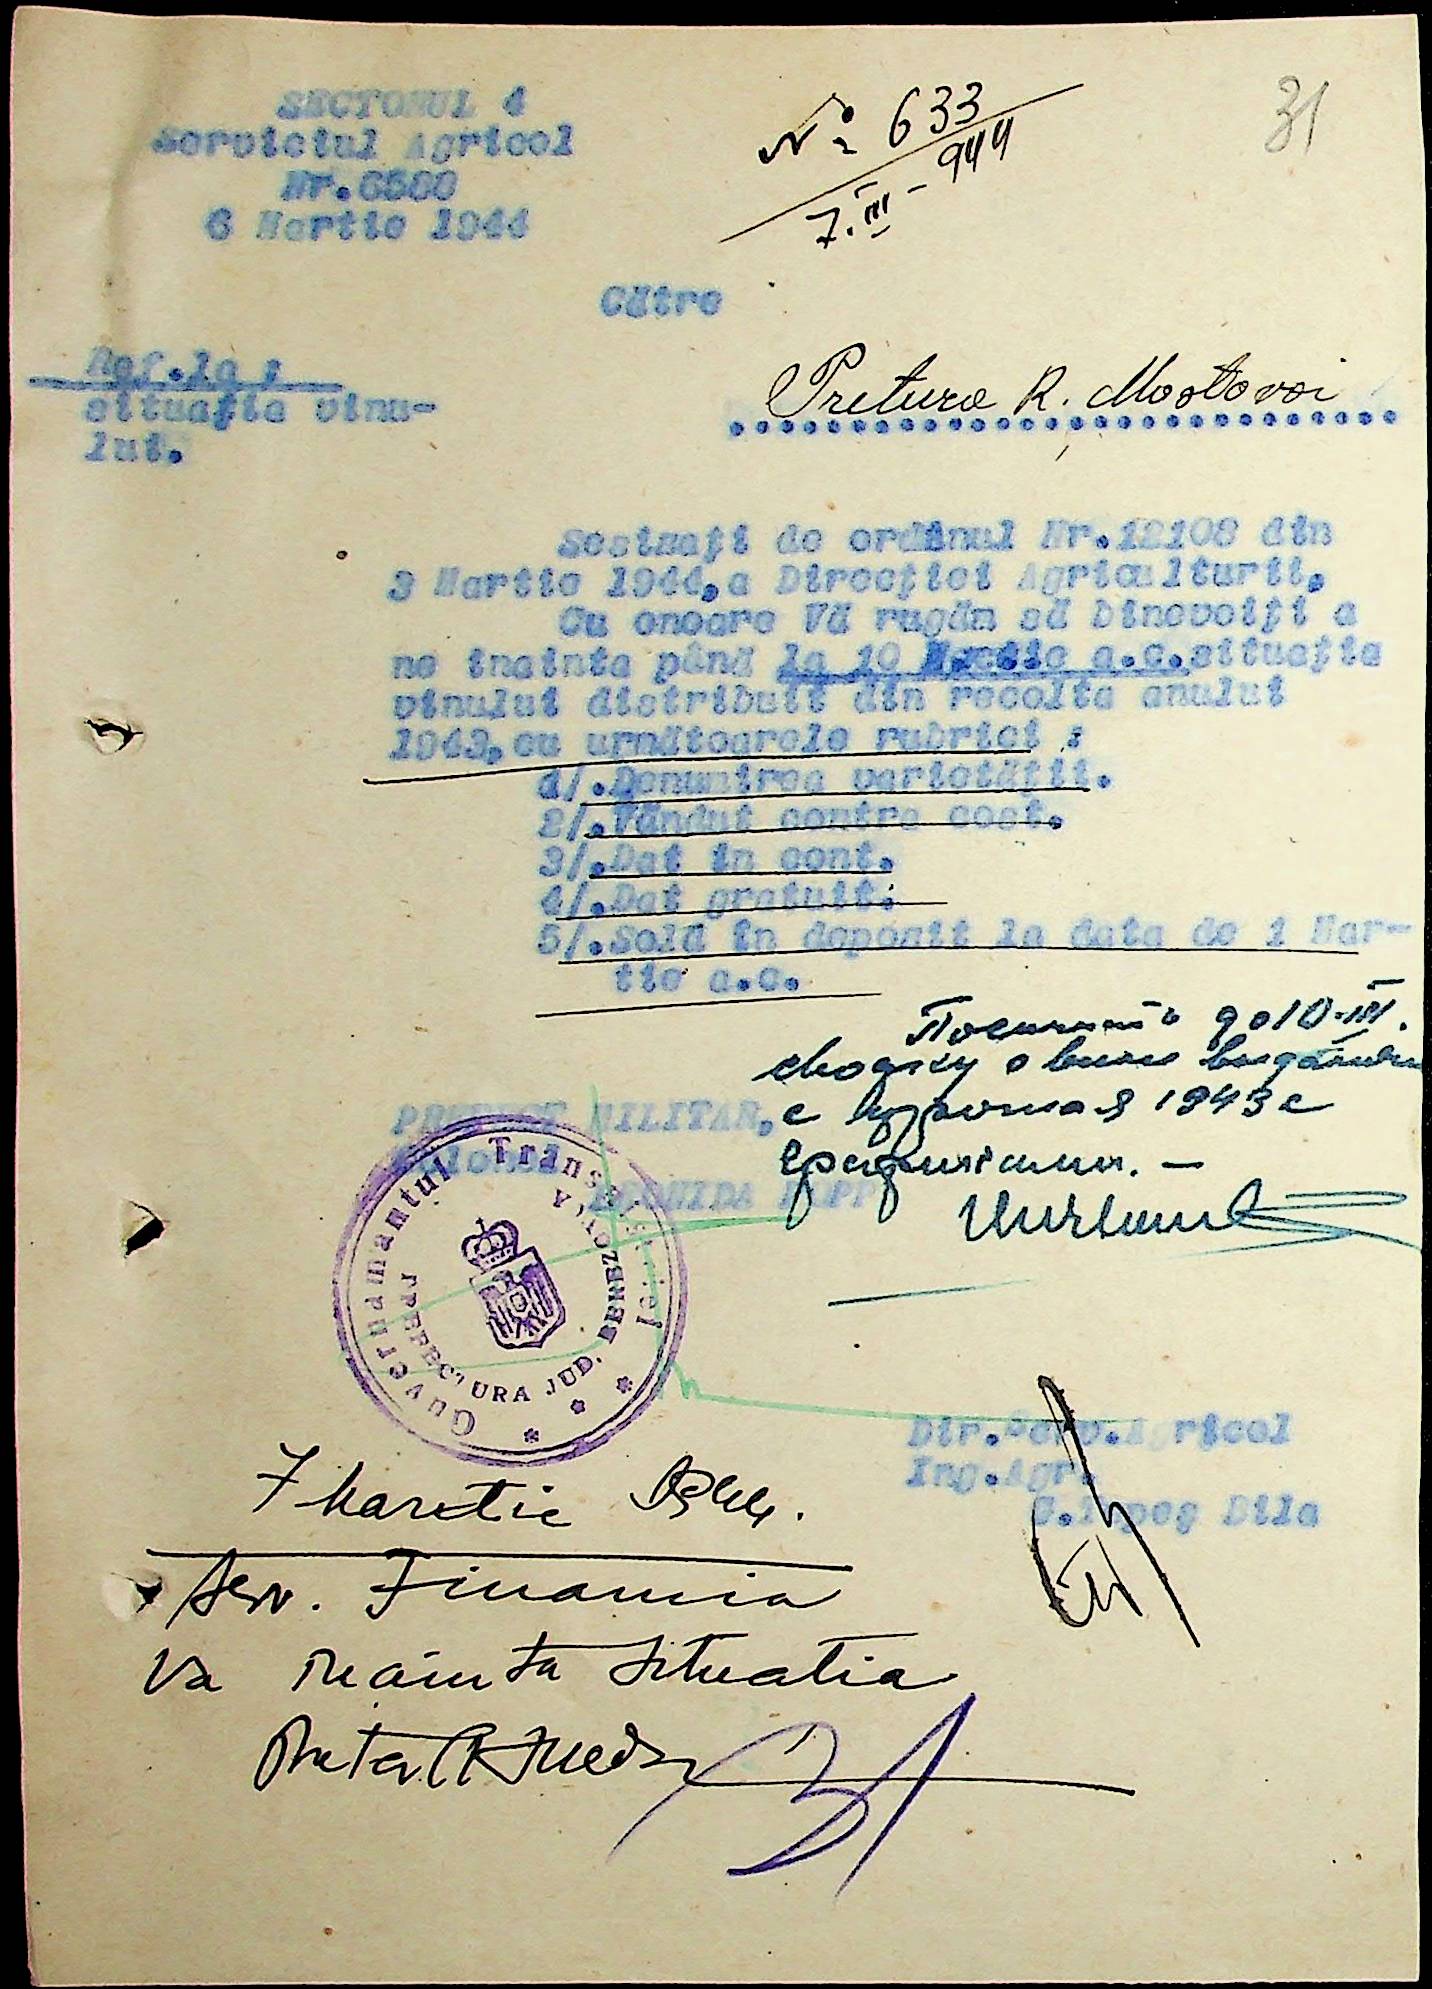 SECTORUL 4
Serviciul Agricol
Nr.6560
6 Martie 1944
No 633
7.III-944
31
Către
Ref.la :
situaţia vinu-
lui.
Pretura R. Mostovoi
Sesizaţi de ordinul Nr.12108 din
3 Martie 1944,a Direcţiei Agriculturii,
Cu onoare Vă rugăm să binevoiţi a
ne inainta până la 10 Martie a.c.situaţia
vinului distribuit din recolta anului
1943,cu următoarele rubrici :
1/.Denumirea varietăţii.
2/.Vândut contra cost.
3/.Dat în cont.
4/.Dat gratuit.
5/.Sold în depozit la data de 1 Mar-
tie a.c.
до 10-III.
сводку о вине
с 1943 с
PREFECT MILITAR,
Colonel
LEONIDA POPP
Guvernamantul Transnistriei
PREFECTURA JUD. BEREZOVCA
Dir.Serv.Agricol
Ing.Agr.
Dila
7 Martie 1944.
Serv. Financia
Va inainta situatia
Pretor